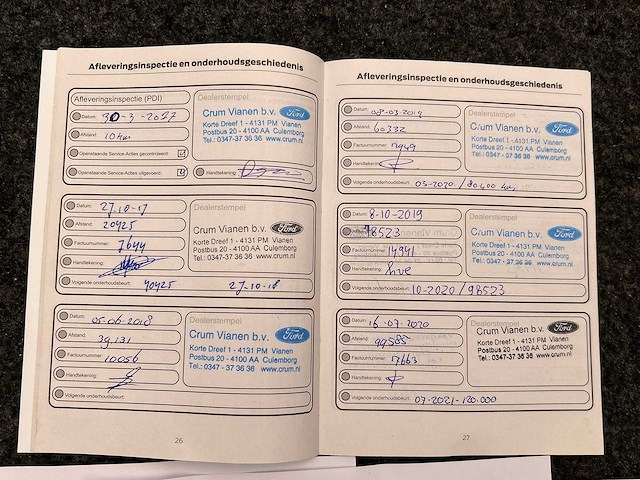 Afleveringsinspectie en onderhoudsgeschiedenis
Afleveringsinspectie (PDI)
Datum: 30-3-2017
Afstand: 10 km
Openstaande Service-Acties gecontroleerd:
Openstaande Service-Acties uitgevoerd:
Dealerstempel
Crum Vianen b.v. Ford
Korte Dreef 1 - 4131 PM Vianen
Postbus 20 - 4100 AA Culemborg
Tel.: 0347-37 36 36 www.crum.nl
Handtekening:
Datum: 27.10-17
Afstand: 20425
Factuurnummer: 7644
Handtekening:
Volgende onderhoudsbeurt: 40425 27-10-18
Dealerstempel
Crum Vianen b.v. Ford
Korte Dreef 1 - 4131 PM Vianen
Postbus 20 - 4100 AA Culemborg
Tel.: 0347-37 36 36 www.crum.nl
Datum: 05-06-2018
Afstand: 39.131
Factuurnummer: 10056
Handtekening:
Volgende onderhoudsbeurt:
Dealerstempel
Crum Vianen b.v. Ford
Korte Dreef 1 - 4131 PM Vianen
Postbus 20 - 4100 AA Culemborg
Tel.: 0347 - 37 36 36 www.crum.nl
26
Afleveringsinspectie en onderhoudsgeschiedenis
Datum: 08-03-2019
Afstand: 60332
Factuurnummer:
Handtekening:
Volgende onderhoudsbeurt: 03-2020 / 80,400 km
Crum Vianen b.v. Ford
Korte Dreef 1 - 4131 PM Vianen
Postbus 20 - 4100 AA Culemborg
Tel.: 0347 - 37 36 36 www.crum.nl
Datum: 8-10-2019
Afstand: 78523
Factuurnummer: 14941
Handtekening:
Volgende onderhoudsbeurt: 10-2020 / 98523
Crum Vianen b.v. Ford
Korte Dreef 1 - 4131 PM Vianen
Postbus 20 - 4100 AA Culemborg
Tel.: 0347 - 37 36 36 www.crum.nl
Datum: 16-07-2020
Afstand: 99585
Factuurnummer: 7663
Handtekening:
Volgende onderhoudsbeurt: 07-2021 - 120.000
Crum Vianen b.v. Ford
Korte Dreef 1 - 4131 PM Vianen
Postbus 20 - 4100 AA Culemborg
Tel.: 0347-37 36 36 www.crum.nl
27